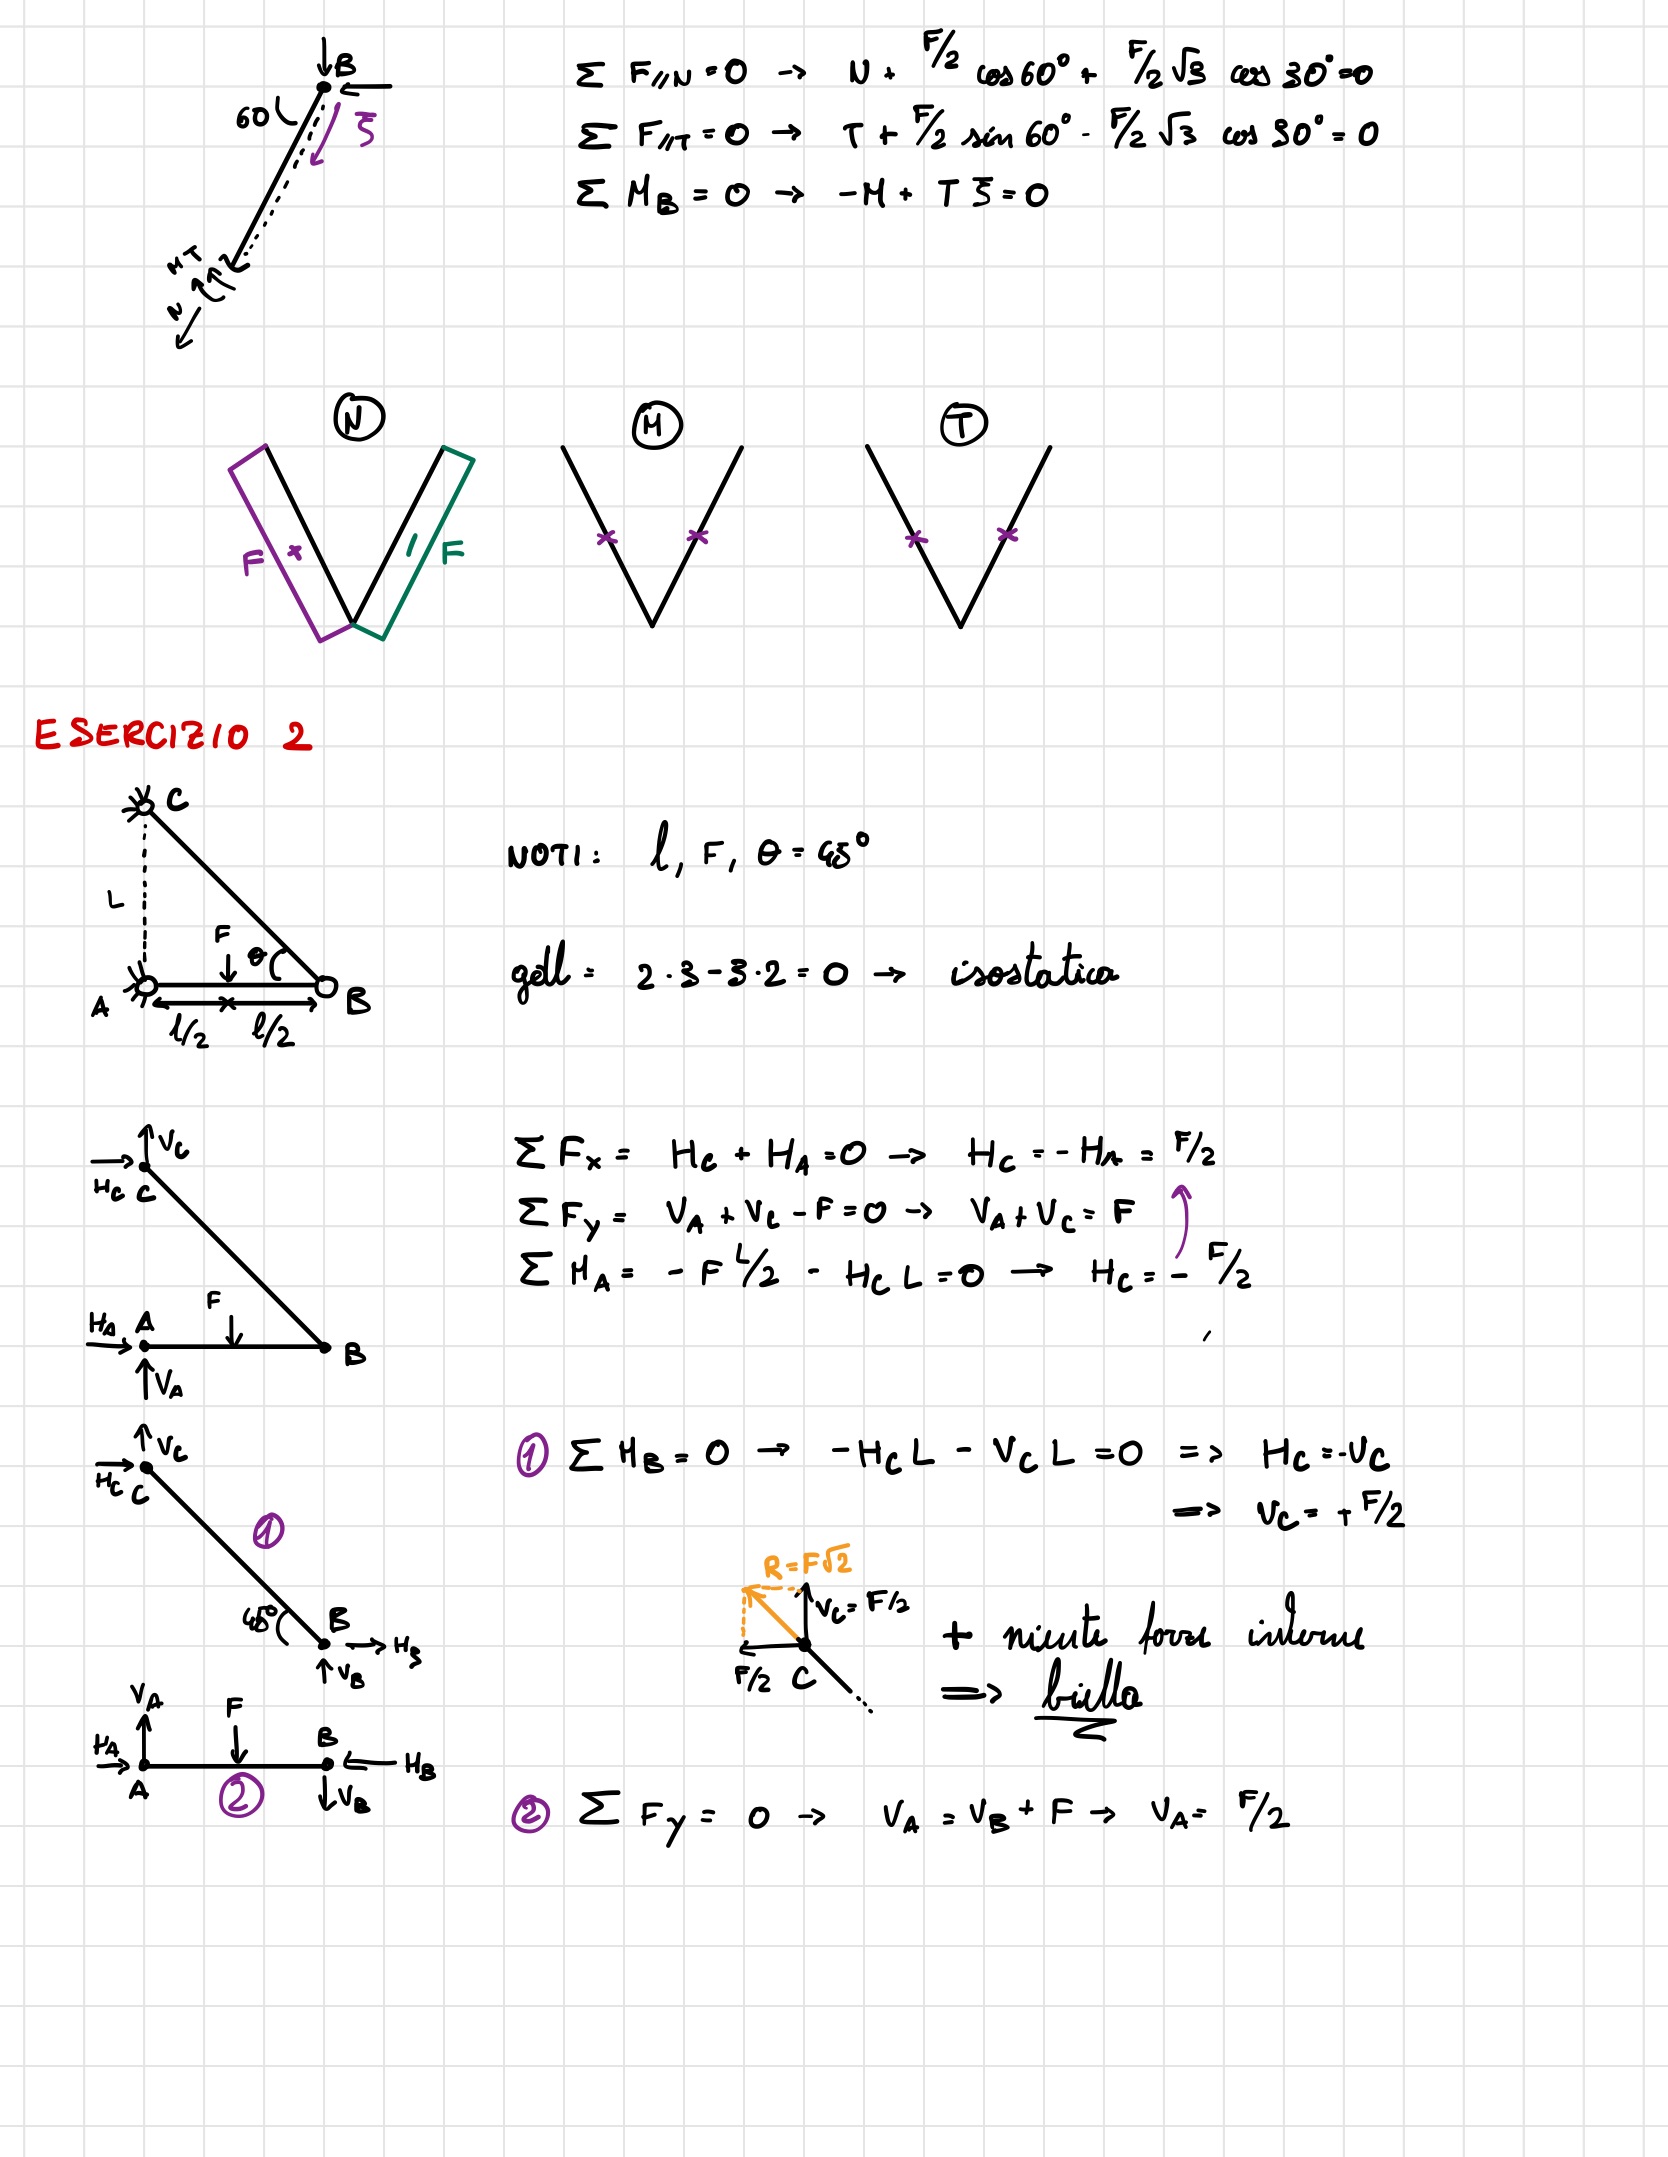 B
60
ξ
M T
N
Σ F//N = 0 → N + F/2 cos 60° + F/2 √3 cos 30° = 0
Σ F//T = 0 → T + F/2 sin 60° - F/2 √3 cos 30° = 0
Σ M_B = 0 → -M + T ξ = 0
N M T
F + - F
ESERCIZIO 2
C
L
F θ
A B
l/2 l/2
NOTI: l, F, θ = 45°
gdll = 2·3-3·2 = 0 → isostatica
V_C
H_C C
F
H_A A
B
V_A
Σ F_x = H_C + H_A = 0 → H_C = -H_A = F/2
Σ F_y = V_A + V_C - F = 0 → V_A + V_C = F
Σ M_A = - F L/2 - H_C L = 0 → H_C = - F/2
V_C
H_C C
1
45° B H_B
V_B
1 Σ M_B = 0 → -H_C L - V_C L = 0 => H_C = -V_C
=> V_C = + F/2
R = F√2
V_C = F/2
F/2 C
+ niente forze interne
=> biella
V_A F
H_A B H_B
A 2 V_B
2 Σ F_y = 0 → V_A = V_B + F → V_A = F/2